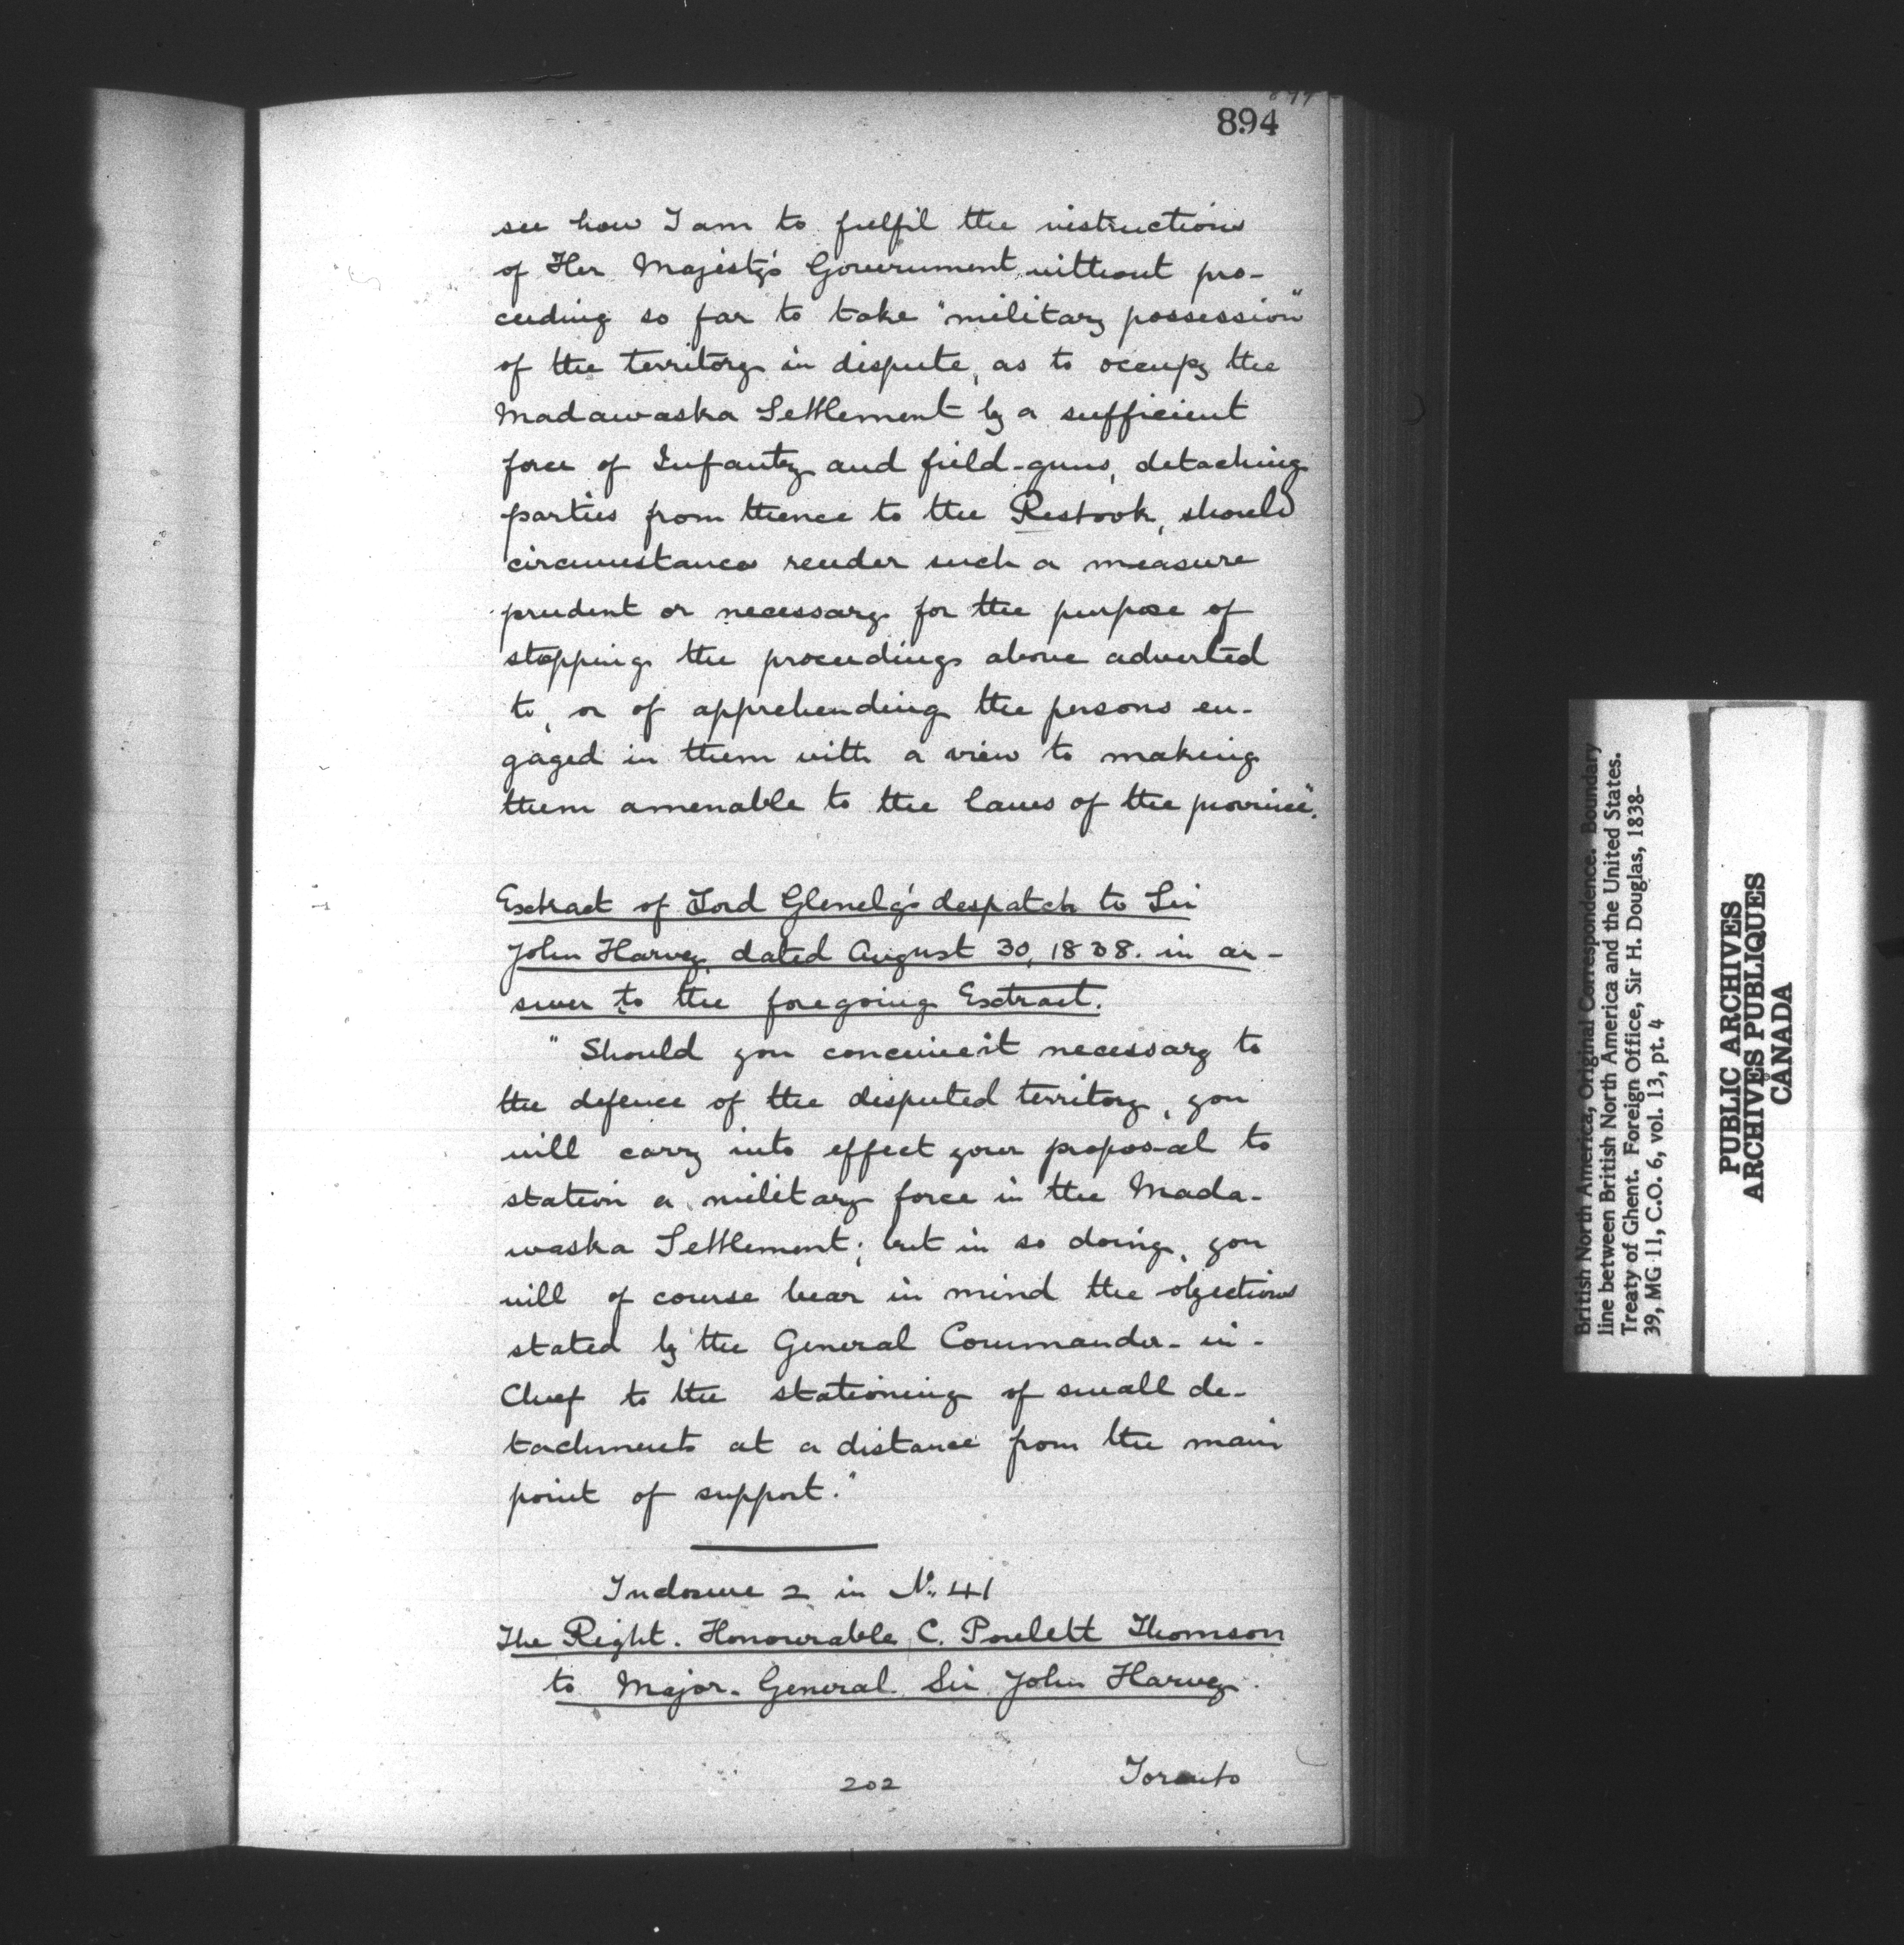 894
see how I am to fulfil the instructions
of Her Majesty's Government without pro-
ceeding so far to take "military possession"
of the territory in dispute, as to occupy the
Madawaska Settlement by a sufficient
force of Infantry and field-guns, detaching
parties from thence to the Restook, should
circumstances render such a measure
prudent or necessary for the purpose of
stopping the proceedings above adverted
to, or of apprehending the persons en-
gaged in them with a view to making
them amenable to the laws of the province".
Extract of Lord Glenelg's despatch to Sir
John Harvey, dated August 30, 1838. in an-
swer to the foregoing Extract.
" Should you conceive it necessary to
the defence of the disputed territory, you
will carry into effect your proposal to
station a military force in the Mada-
waska Settlement; but in so doing, you
will of course bear in mind the objections
stated by the General Commander-in-
Chief to the stationing of small de-
tachments at a distance from the main
point of support."
Inclosure 2 in No. 41
The Right. Honourable C. Poulett Thomson
to Major-General Sir John Harvey.
202
Toronto
British North America, Original Correspondence. Boundary
line between British North America and the United States.
Treaty of Ghent. Foreign Office, Sir H. Douglas, 1838-
39, MG 11, C.O. 6, vol. 13, pt. 4
PUBLIC ARCHIVES
ARCHIVES PUBLIQUES
CANADA